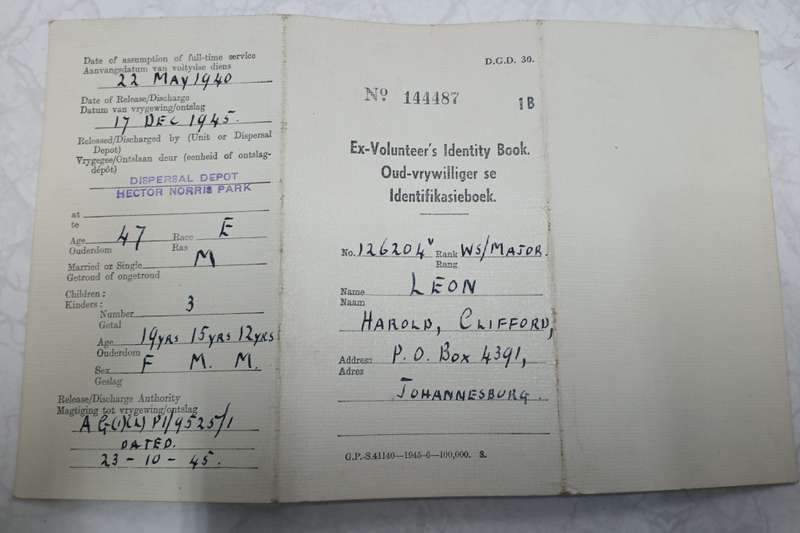 Date of assumption of full-time service
Aanvangsdatum van voltydse diens
22 MAY 1940
Date of Release/Discharge
Datum van vrygewing/ontslag
17 DEC 1945.
Released/Discharged by (Unit or Dispersal
Depot)
Vrygegee/Ontslaan deur (eenheid of ontslag-
depôt)
DISPERSAL DEPOT
HECTOR NORRIS PARK
at
te
Age 47 Race E
Ouderdom Ras
Married or Single M
Getroud of ongetroud
Children:
Kinders:
Number 3
Getal
Age 19YRS 15YRS 12YRS
Ouderdom
Sex F M. M.
Geslag
Release/Discharge Authority
Magtiging tot vrygewing/ontslag
DATED.
23-10-45.
D.G.D. 30.
No 144487 1B
Ex-Volunteer's Identity Book.
Oud-vrywilliger se
Identifikasieboek.
No. 126204V Rank WS/MAJOR.
Rang
Name LEON
Naam
HAROLD, CLIFFORD,
Address: P.O. BOX 4391,
Adres
JOHANNESBURG.
G.P.-S.41140—1945-6—100,000. S.